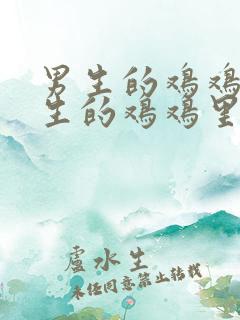 男生的鸡鸡
生的鸡鸡里
盧水生
未经同意禁止转载